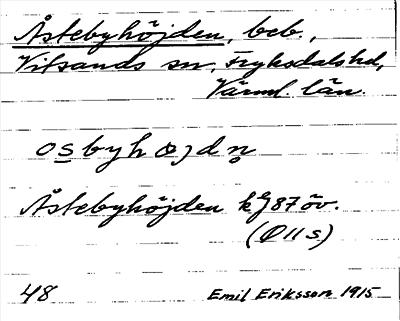 Åstebyhöjden, beb.,
Vitsands sn, Fryksdals hd,
Värml. län.
Åstebyhöjden kg 87 öv.
48 Emil Eriksson 1915